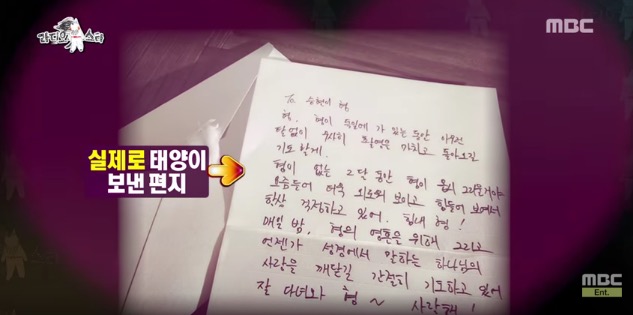 라디오스타
MBC
To 승현이 형
형, 형이 독일에 가 있는 동안 아무런
탈없이 무사히 촬영을 마치고 돌아오길
기도 할게.
형이 없는 2달 동안 형이 몹시 그리울거야
요즘들어 더욱 외로워 보이고 힘들어 보여서
항상 걱정하고 있어. 힘내 형!
매일 밤, 형의 영혼을 위해 그리고
언젠가 성경에서 말하는 하나님의
사랑을 깨닫길 간절히 기도하고 있어
잘 다녀와 형~ 사랑해!
실제로 태양이
보낸 편지
MBC
Ent.